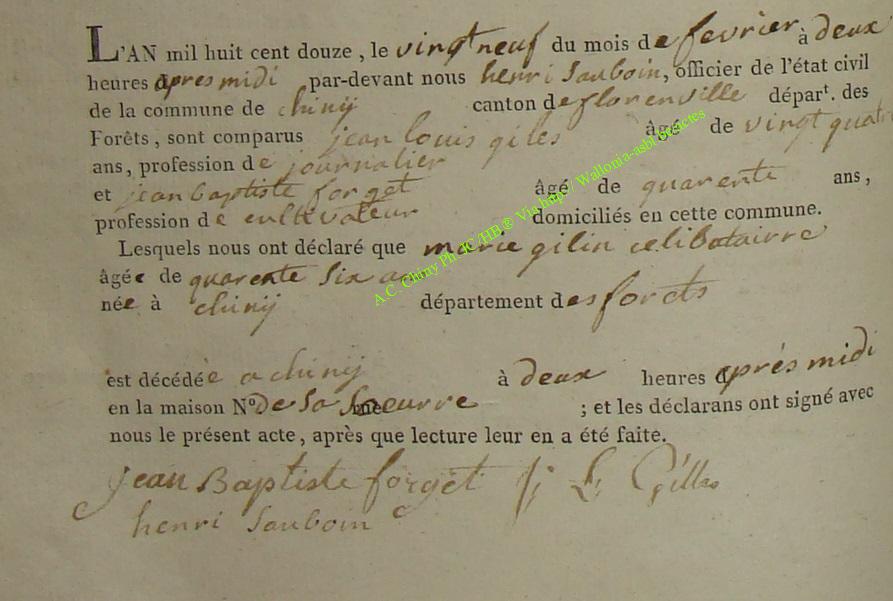 L'AN mil huit cent douze, le vingt neuf du mois de fevrier à deux
heures apres midi par-devant nous henri Sauboin, officier de l'état civil
de la commune de chinij canton de florenville départ. des
Forêts, sont comparus jean louis giles âgé de vingt quatre
ans, profession de journalier
et jean baptiste forget âgé de quarente ans,
profession de cultivateur domiciliés en cette commune.
Lesquels nous ont déclaré que marie gilin celibatairre
âgée de quarente six ans
née à chinij département des forets
est décédée a chinij à deux heures après midi
en la maison N° de sa soeurre ; et les déclarans ont signé avec
nous le présent acte, après que lecture leur en a été faite.
jean Baptiste forget J L Gilles
henri Sauboin